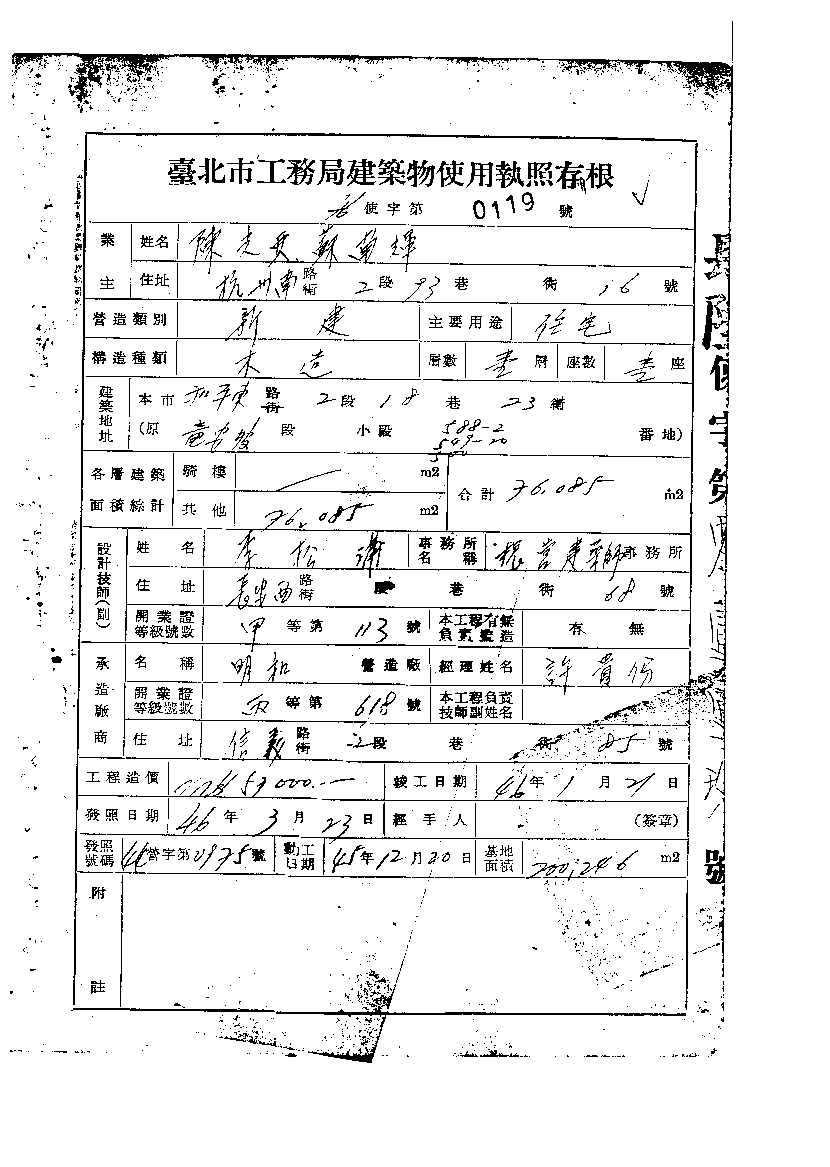 臺北市工務局建築物使用執照存根
使字第 0119 號
業主 姓名 陳 蘇
住址 杭州南 路街 2 段 93 巷 街 16 號
營造類別 新建 主要用途 住宅
構造種類 木造 層數 壹 層 座數 壹 座
建築地址 本市 和平東 路街 2 段 18 巷 23 衖
(原 段 小段 588-2 549-20 番地)
各層建築面積綜計 騎樓 m2 合計 76.085 m2
其他 76.085 m2
設計技師(副) 姓名 李松 事務所名稱 建築師事務所
住址 長安西 路街 段 巷 街 68 號
開業證等級號數 甲 等第 113 號 本工程有無負責監造 有 無
承造廠商 名稱 明和 營造廠 經理姓名 許貴
開業證等級號數 丙 等第 618 號 本工程負責技師副姓名
住址 信義 路街 2 段 巷 街 85 號
工程造價 53000.— 竣工日期 46 年 1 月 21 日
發照日期 46 年 3 月 23 日 經手人 (簽章)
發照號碼 營字第 0975 號 動工日期 45 年 12 月 20 日 基地面積 200.246 m2
附註